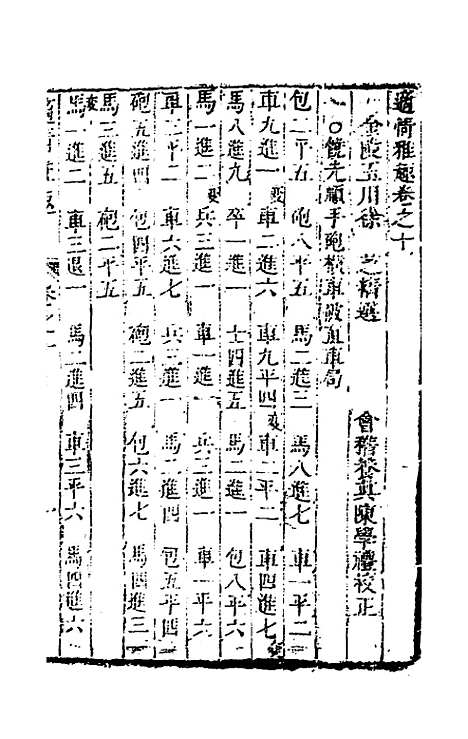 適情雅趣卷之十
金陵玉川徐 芝精選 會稽養真陳學禮校正
一〇饒先順手砲橫車破直車局
包二平五 砲八平五 馬二進三 馬八進七 車一平二
車九進一變 車二進六 車九平四變 車二平二 車四進七
馬八進九 卒一進一 士四進五 馬二進一 包八平六
馬一進二變 兵三進一 車一進一 兵三進一 車一平六
車二平二 車六進七 兵三進一 馬二進四 包五平四
砲五進四 包四平五 砲二進五 包六進七 馬四進三
馬三進五 砲二平五
變馬一進二 車三退一 馬二進四 車三平六 馬四進六